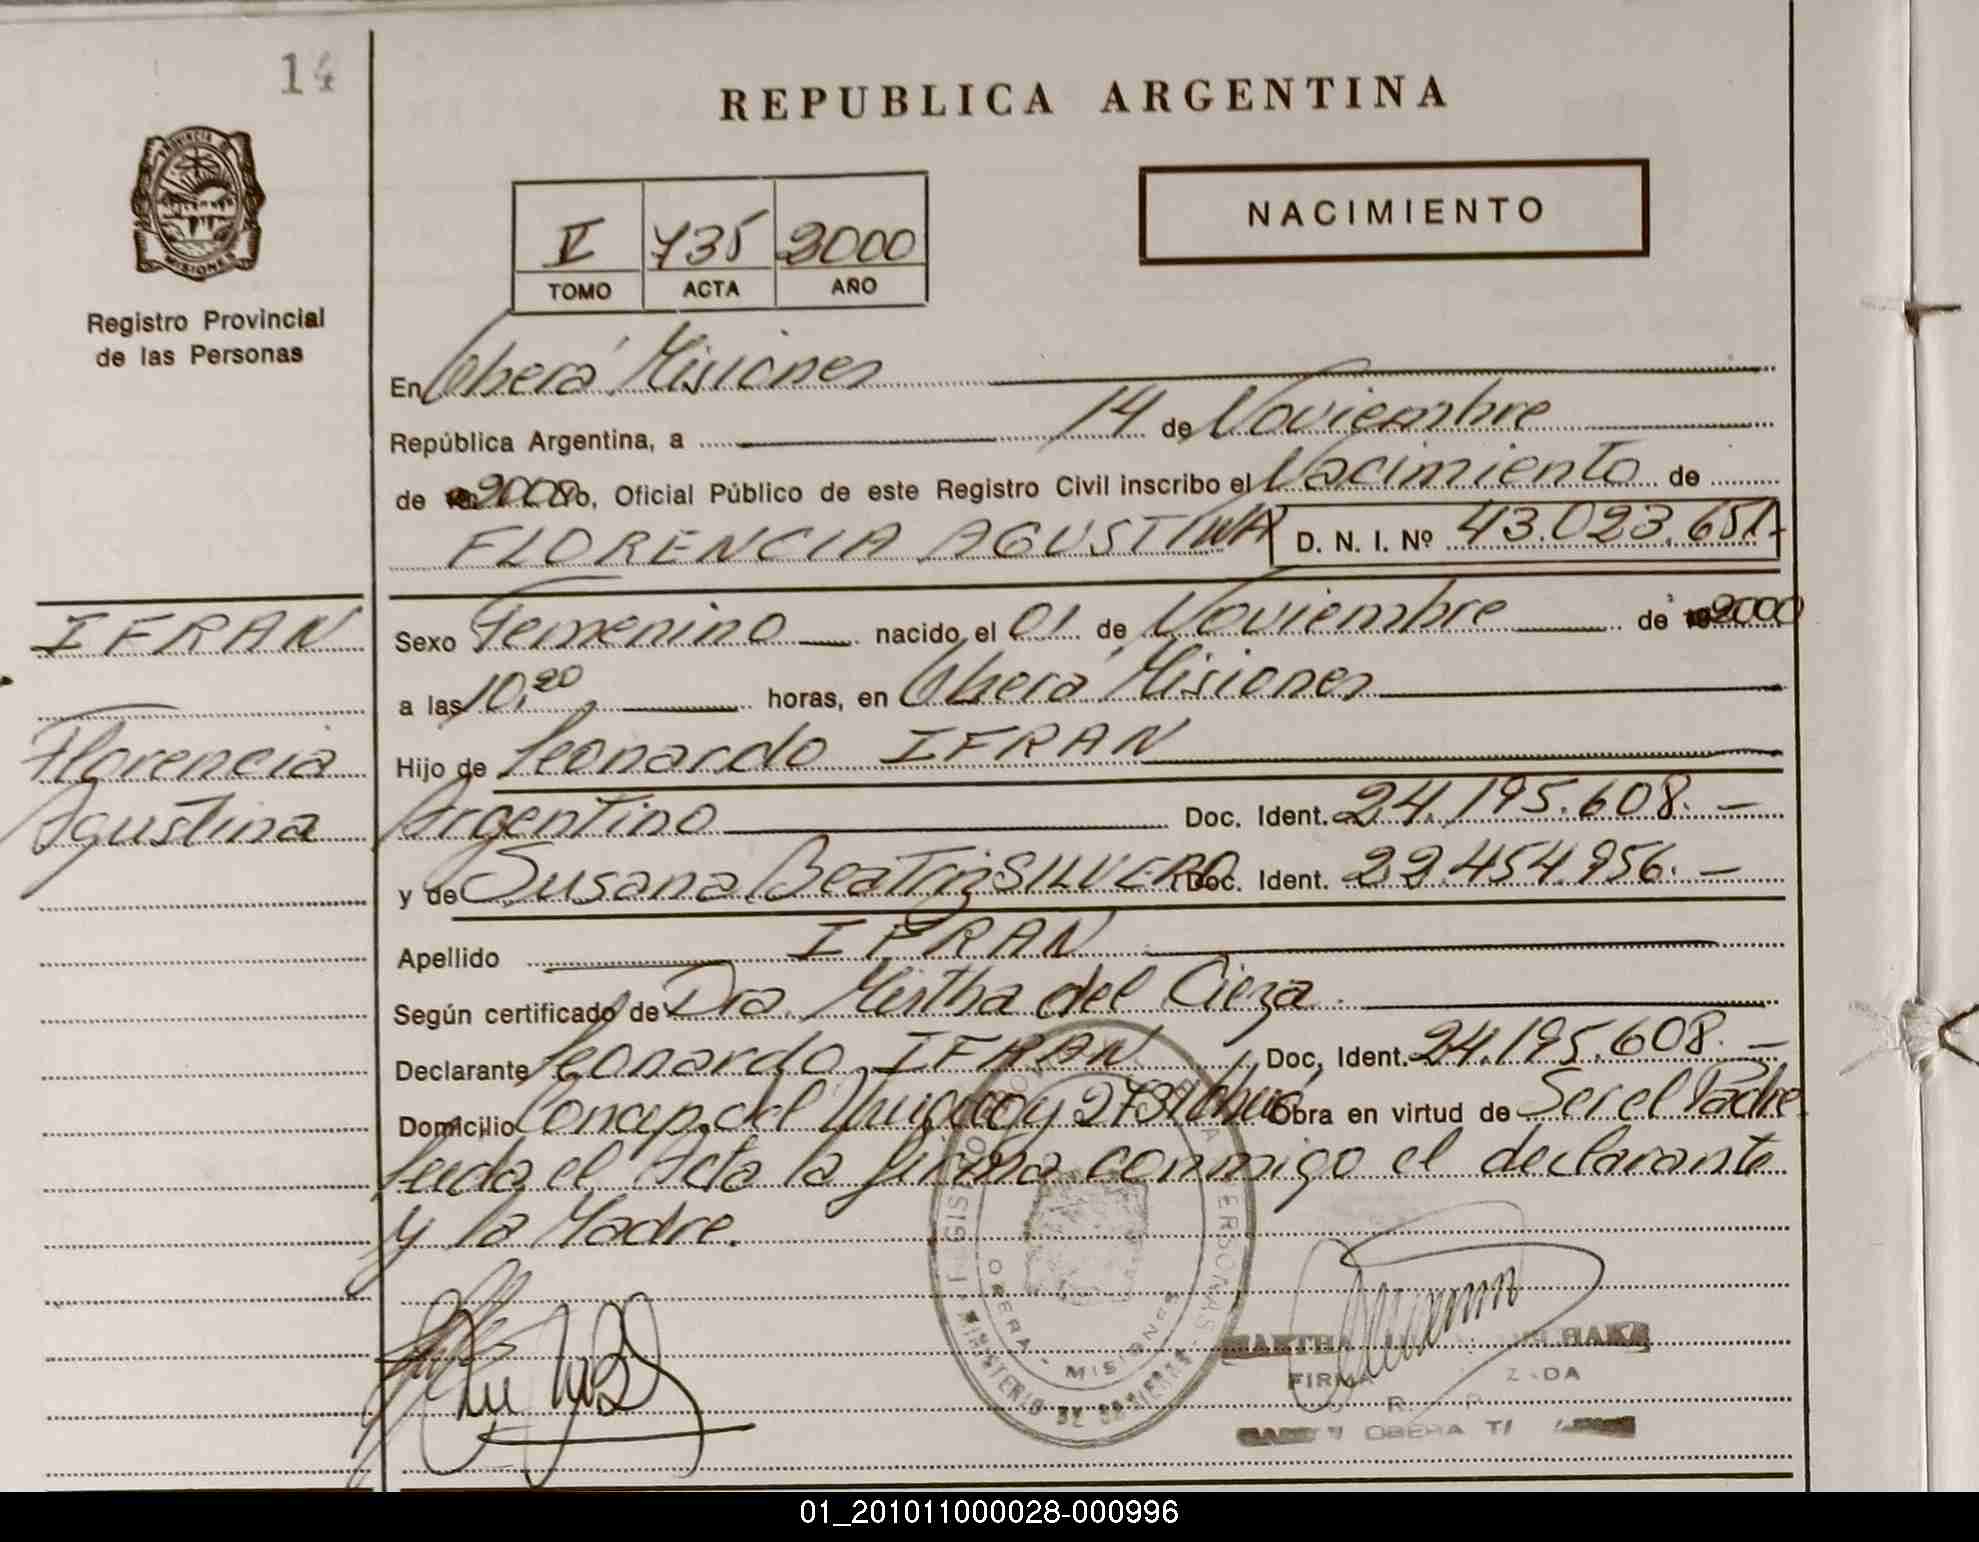 14
REPUBLICA ARGENTINA
PROVINCIA DE
MISIONES
Registro Provincial
de las Personas
V 735 2000
TOMO ACTA AÑO
NACIMIENTO
En Oberá Misiones
República Argentina, a 14 de Noviembre
de 2000 yo, Oficial Público de este Registro Civil inscribo el Nacimiento de
FLORENCIA AGUSTINA D. N. I. Nº 43.023.651.-
IFRAN
Florencia
Agustina
Sexo Femenino nacido el 01 de Noviembre de 2000
a las 10,20 horas, en Oberá Misiones
Hijo de Leonardo IFRAN
Argentino Doc. Ident. 24.195.608.-
y de Susana Beatriz SILVERO Doc. Ident. 22.454.956.-
Apellido IFRAN
Según certificado de Dra. Mirtha del Cieza
Declarante Leonardo IFRAN Doc. Ident. 24.195.608.-
Domicilio Concep. del Uruguay Oberá Obra en virtud de Ser el Padre
Leída el Acta la firma conmigo el declarante
y la Madre.
OBERA - MISIONES
MINISTERIO DE GOBIERNO
MARTHA
FIRMA
OBERA
01_201011000028-000996